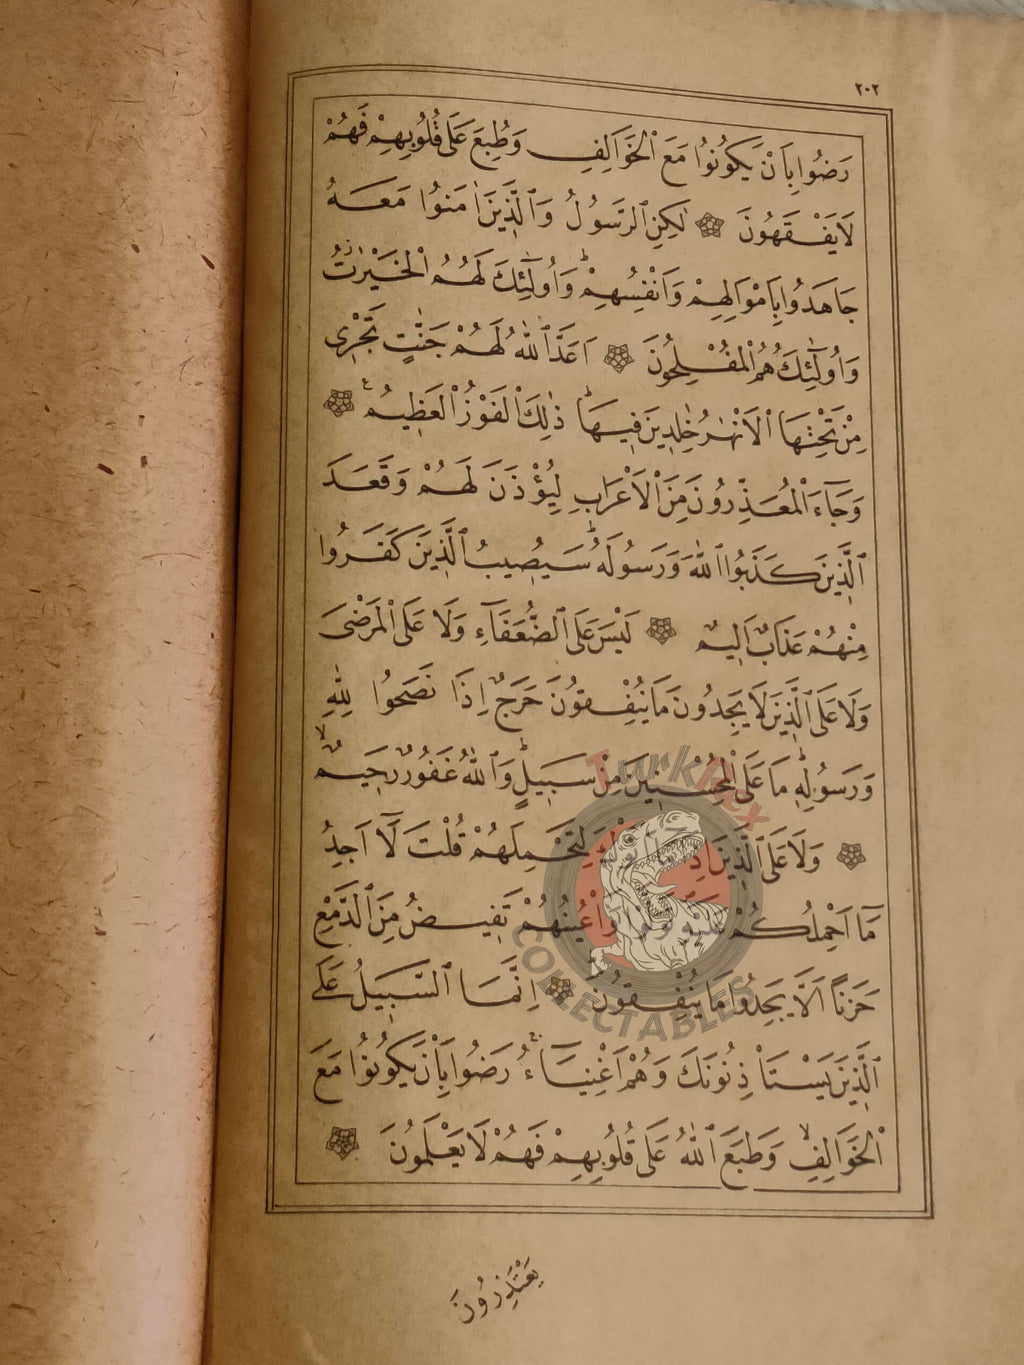 ٢٠٢
رَضُوا بِاَنْ يَكُونُوا مَعَ الْخَوَالِفِ وَطُبِعَ عَلٰى قُلُوبِهِمْ فَهُمْ
لَا يَفْقَهُونَ لٰكِنِ الرَّسُولُ وَالَّذِينَ اٰمَنُوا مَعَهُ
جَاهَدُوا بِاَمْوَالِهِمْ وَاَنْفُسِهِمْ وَاُولٰٓئِكَ لَهُمُ الْخَيْرَاتُ
وَاُولٰٓئِكَ هُمُ الْمُفْلِحُونَ اَعَدَّ اللّٰهُ لَهُمْ جَنَّاتٍ تَجْرِى
مِنْ تَحْتِهَا الْاَنْهَارُ خَالِدِينَ فِيهَا ذٰلِكَ الْفَوْزُ الْعَظِيمُ
وَجَٓاءَ الْمُعَذِّرُونَ مِنَ الْاَعْرَابِ لِيُؤْذَنَ لَهُمْ وَقَعَدَ
الَّذِينَ كَذَبُوا اللّٰهَ وَرَسُولَهُ سَيُصِيبُ الَّذِينَ كَفَرُوا
مِنْهُمْ عَذَابٌ اَلِيمٌ لَيْسَ عَلَى الضُّعَفَٓاءِ وَلَا عَلَى الْمَرْضٰى
وَلَا عَلَى الَّذِينَ لَا يَجِدُونَ مَا يُنْفِقُونَ حَرَجٌ اِذَا نَصَحُوا لِلّٰهِ
وَرَسُولِهِ مَا عَلَى الْمُحْسِنِينَ مِنْ سَبِيلٍ وَاللّٰهُ غَفُورٌ رَحِيمٌ
وَلَا عَلَى الَّذِينَ اِذَا لِتَحْمِلَهُمْ قُلْتَ لَٓا اَجِدُ
مَٓا اَحْمِلُكُمْ عَلَيْهِ وَاَعْيُنُهُمْ تَفِيضُ مِنَ الدَّمْعِ
حَزَنًا اَلَّا يَجِدُوا مَا يُنْفِقُونَ اِنَّمَا السَّبِيلُ عَلَى
الَّذِينَ يَسْتَاْذِنُونَكَ وَهُمْ اَغْنِيَٓاءُ رَضُوا بِاَنْ يَكُونُوا مَعَ
الْخَوَالِفِ وَطَبَعَ اللّٰهُ عَلٰى قُلُوبِهِمْ فَهُمْ لَا يَعْلَمُونَ
يَعْتَذِرُونَ
TurkRex
COLLECTABLES